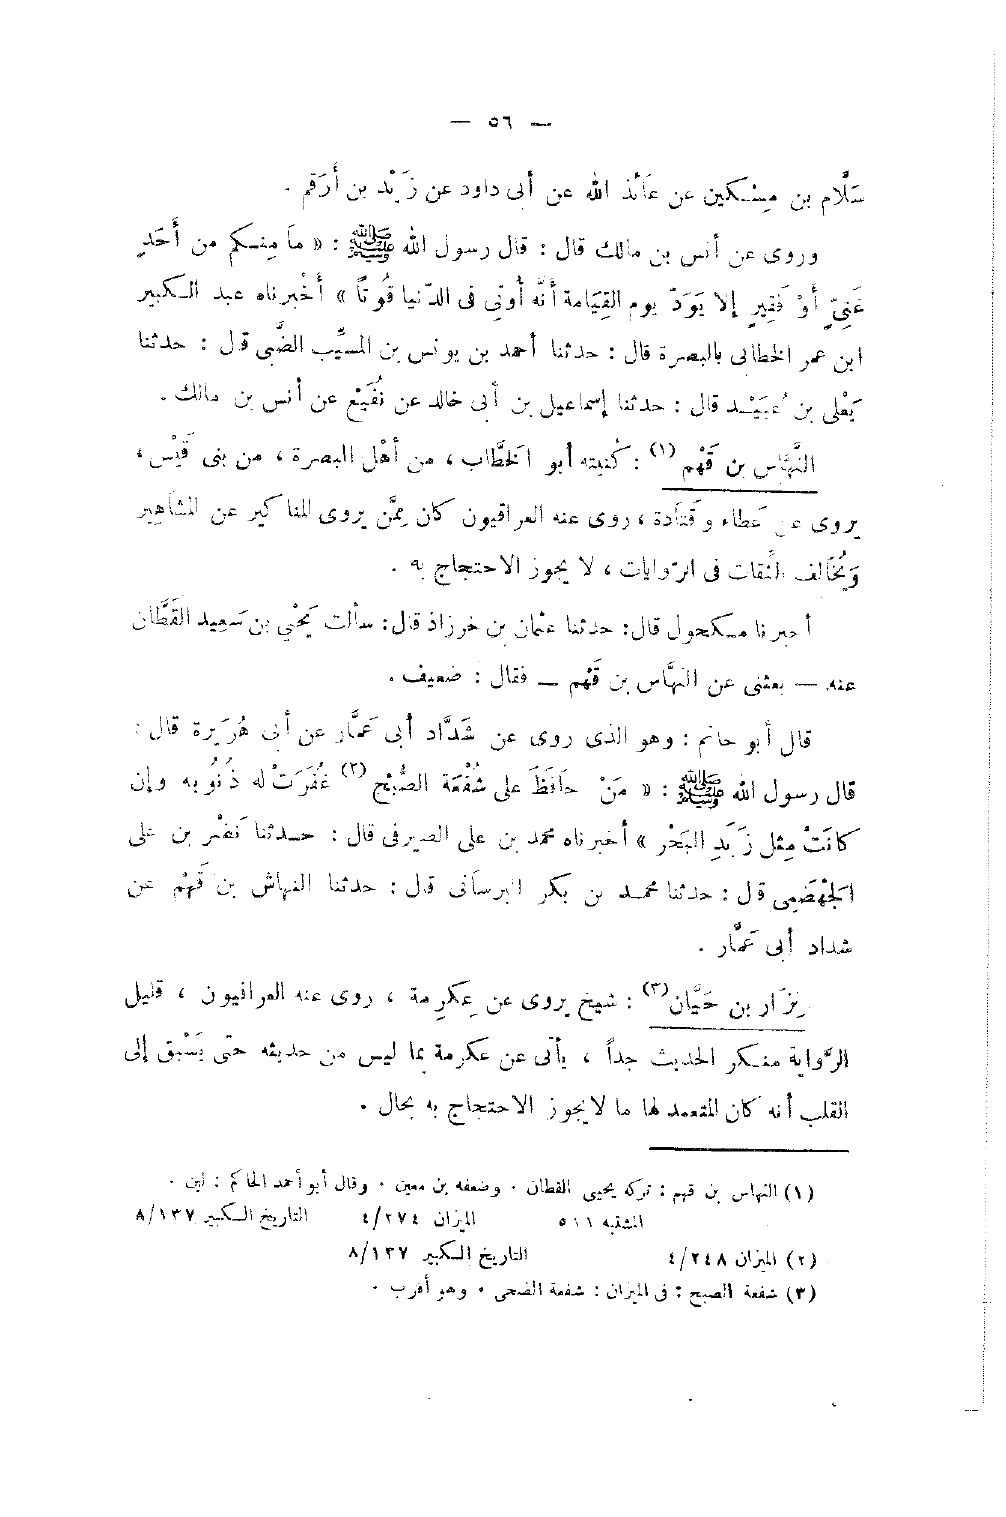 — ٥٦ —
سَلَّام بن مِسْكين عن عَائذ الله عن أبى داود عن زَيْد بن أَرقم .
وروى عن أنس بن مالك قال : قال رسول الله ﷺ : « مَا مِنكم من أَحَدٍ
غَنِىٍّ أَوْ فَقِيرٍ إلا يَوَدّ يوم القِيَامة أَنَّه أُوتِى فى الدّنيا قُوتاً » أَخْبرناه عبد الكبير
ابن عمر الخطابى بالبصرة قال : حدثنا أحمد بن يونس بن المسيِّب الضَّبى قال : حدثنا
يَعْلى بن عُبَيْد قال : حدثنا إسماعيل بن أبى خالد عن نُفَيْع عن أنس بن مالك .
النَّهَّاس بن قَهْم (١) : كُنيته أبو الخطَّاب ، من أهْل البصرة ، من بنى قَيْس ،
يروى عن عَطاء وقَتَادة ، روى عنه العراقيون كان مِمَّن يروى المناكير عن المشاهير
وَيُخَالف الثقات فى الرّوايات ، لا يجوز الاحتجاج به .
أخبرنا مكحول قال : حدثنا عثمان بن خرزاذ قال : سألت يَحْيى بن سَعِيد القَطَّان
عنه — يعنى عن النهَّاس بن قَهْم — فقال : ضعيف .
قال أبو حاتم : وهو الذى روى عن شَدَّاد أبى عَمَّار عن أبى هُرَيرة قال :
قال رسول الله ﷺ : « مَنْ حافَظَ على شُفْعَة الصُّبْح (٢) غُفَرَتْ له ذُنُوبه وإن
كانَتْ مِثل زَبَدِ البَحْر » أخبرناه محمد بن على الصيرفى قال : حدثنا نَصْر بن على
الجَهْضَمِى قال : حدثنا محمد بن بكر البرسانى قال : حدثنا النهاش بن قَهْم عن
شداد أبى عَمَّار .
نِزَار بن حَيَّان (٣) : شيخ يروى عن عِكرِمة ، روى عنه العراقيون ، قليل
الرِّواية منكر الحديث جداً ، يأتى عن عكرمة بما ليس من حديثه حتى يَسْبق إلى
القلب أنه كان المتعمد لها ما لا يجوز الاحتجاج به بحال .
(١) النهاس بن قهم : تركه يحيى القطان . وضعفه بن معين . وقال أبو أحمد الحاكم : لين .
المشتبه ٥١١ الميزان ٤/٢٧٤ التاريخ الكبير ٨/١٣٧
(٢) الميزان ٤/٢٤٨ التاريخ الكبير ٨/١٣٧
(٣) شفعة الصبح : فى الميزان : شفعة الضحى . وهو أقرب .